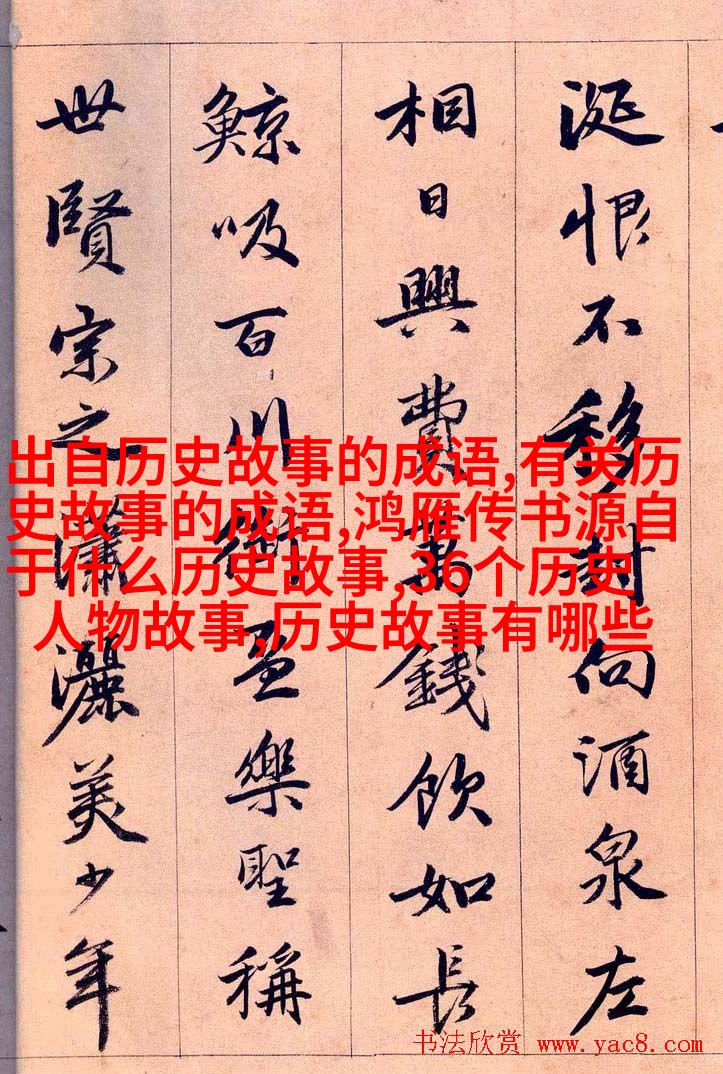 涎恨不移封向酒泉左
相日興費萬錢飲如長
鯨吸百川銜盃樂聖稱
世賢宗之瀟灑美少年
出自历史故事的成语,有关历
史故事的成语,鸿雁传书源自
于什么历史故事,36个历史
人物故事,历史故事有哪些
书法欣赏 www.yac8.com